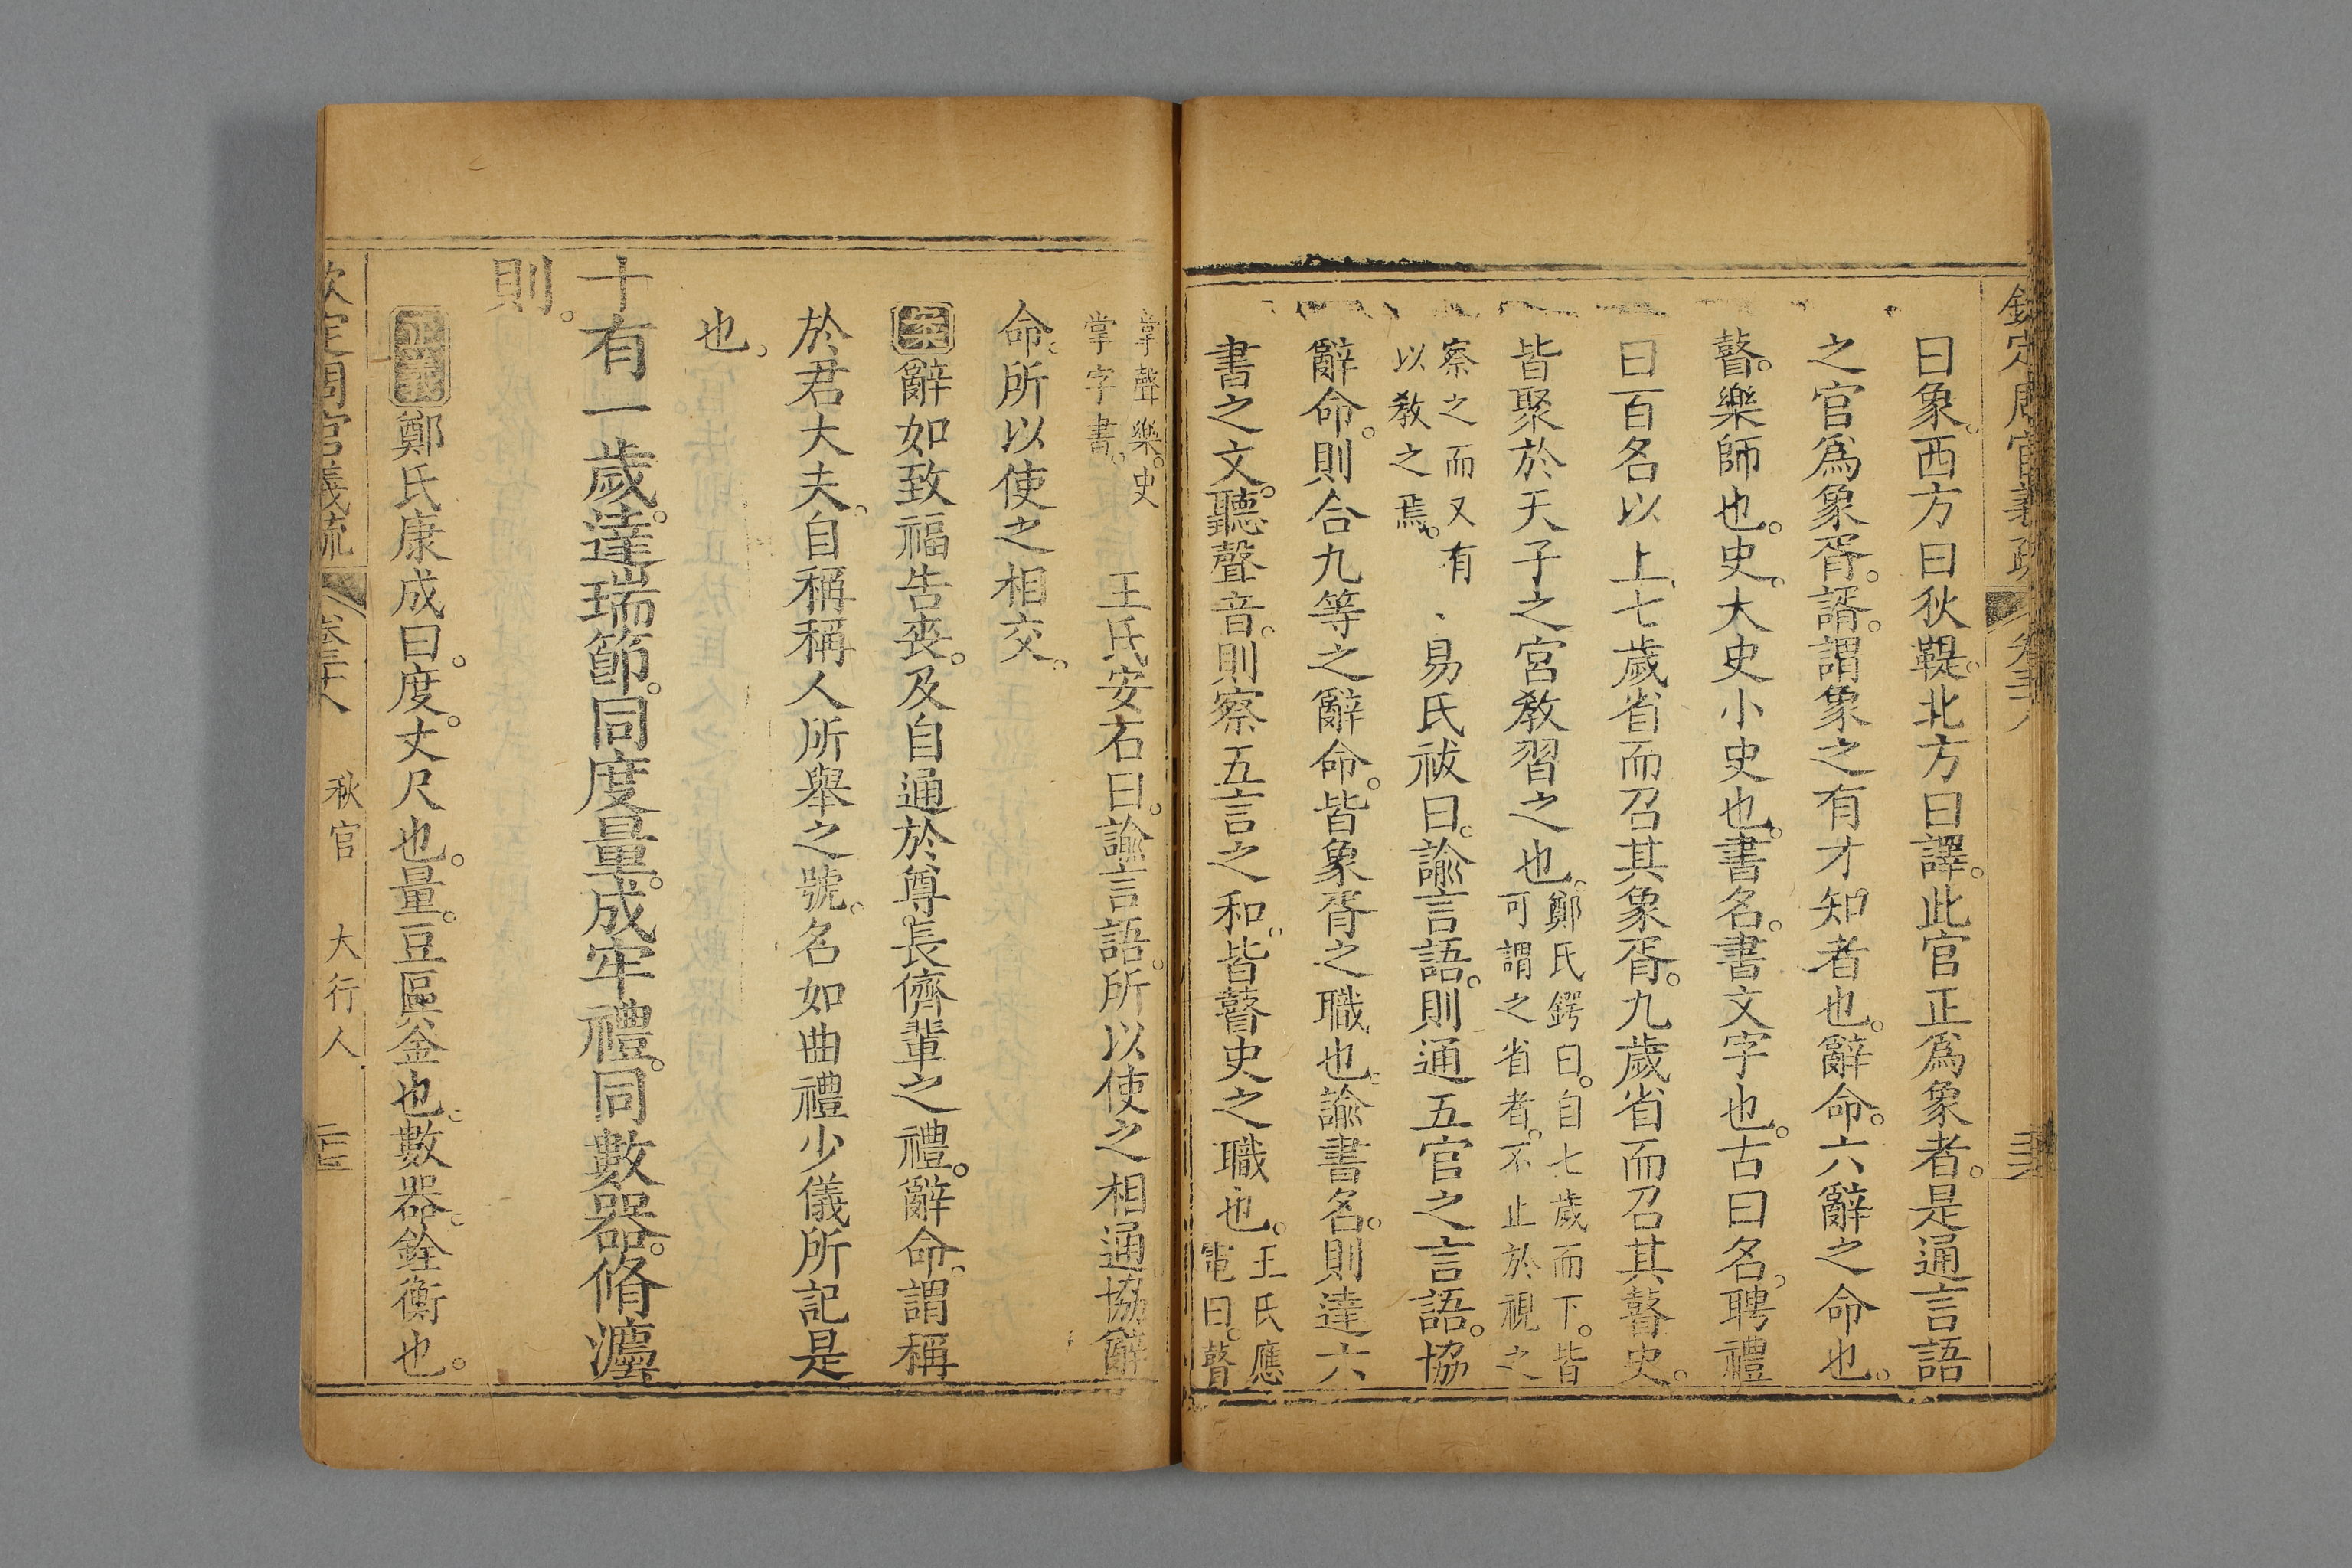 曰象。西方曰狄鞮。北方曰譯。此官正爲象者。是通言語
之官爲象胥。諝。謂象之有才知者也。辭命。六辭之命也。
瞽。樂師也。史。大史小史也。書名。書文字也。古曰名。聘禮
曰百名以上。七歲省而召其象胥。九歲省而召其瞽史。
皆聚於天子之宮敎習之也。鄭氏鍔曰。自七歲而下。皆
可謂之省者。不止於視之
察之而又有
以敎之焉。
易氏祓曰。諭言語。則通五官之言語。協
辭命。則合九等之辭命。皆象胥之職也。諭書名。則達六
書之文。聽聲音。則察五言之和。皆瞽史之職也。王氏應
電曰。瞽
掌聲樂。史
掌字書。
王氏安石曰。諭言語。所以使之相通。協辭
命。所以使之相交。
辭如致福告喪。及自通於尊長儕輩之禮。辭命。謂稱
於君大夫。自稱稱人所舉之號。名如曲禮少儀所記是
也。
十有一歲。達瑞節。同度量。成牢禮。同數器。脩灋
則。
鄭氏康成曰。度。丈尺也。量。豆區釜也。數器。銓衡也。
欽定周官義疏 卷三十八 秋官 大行人